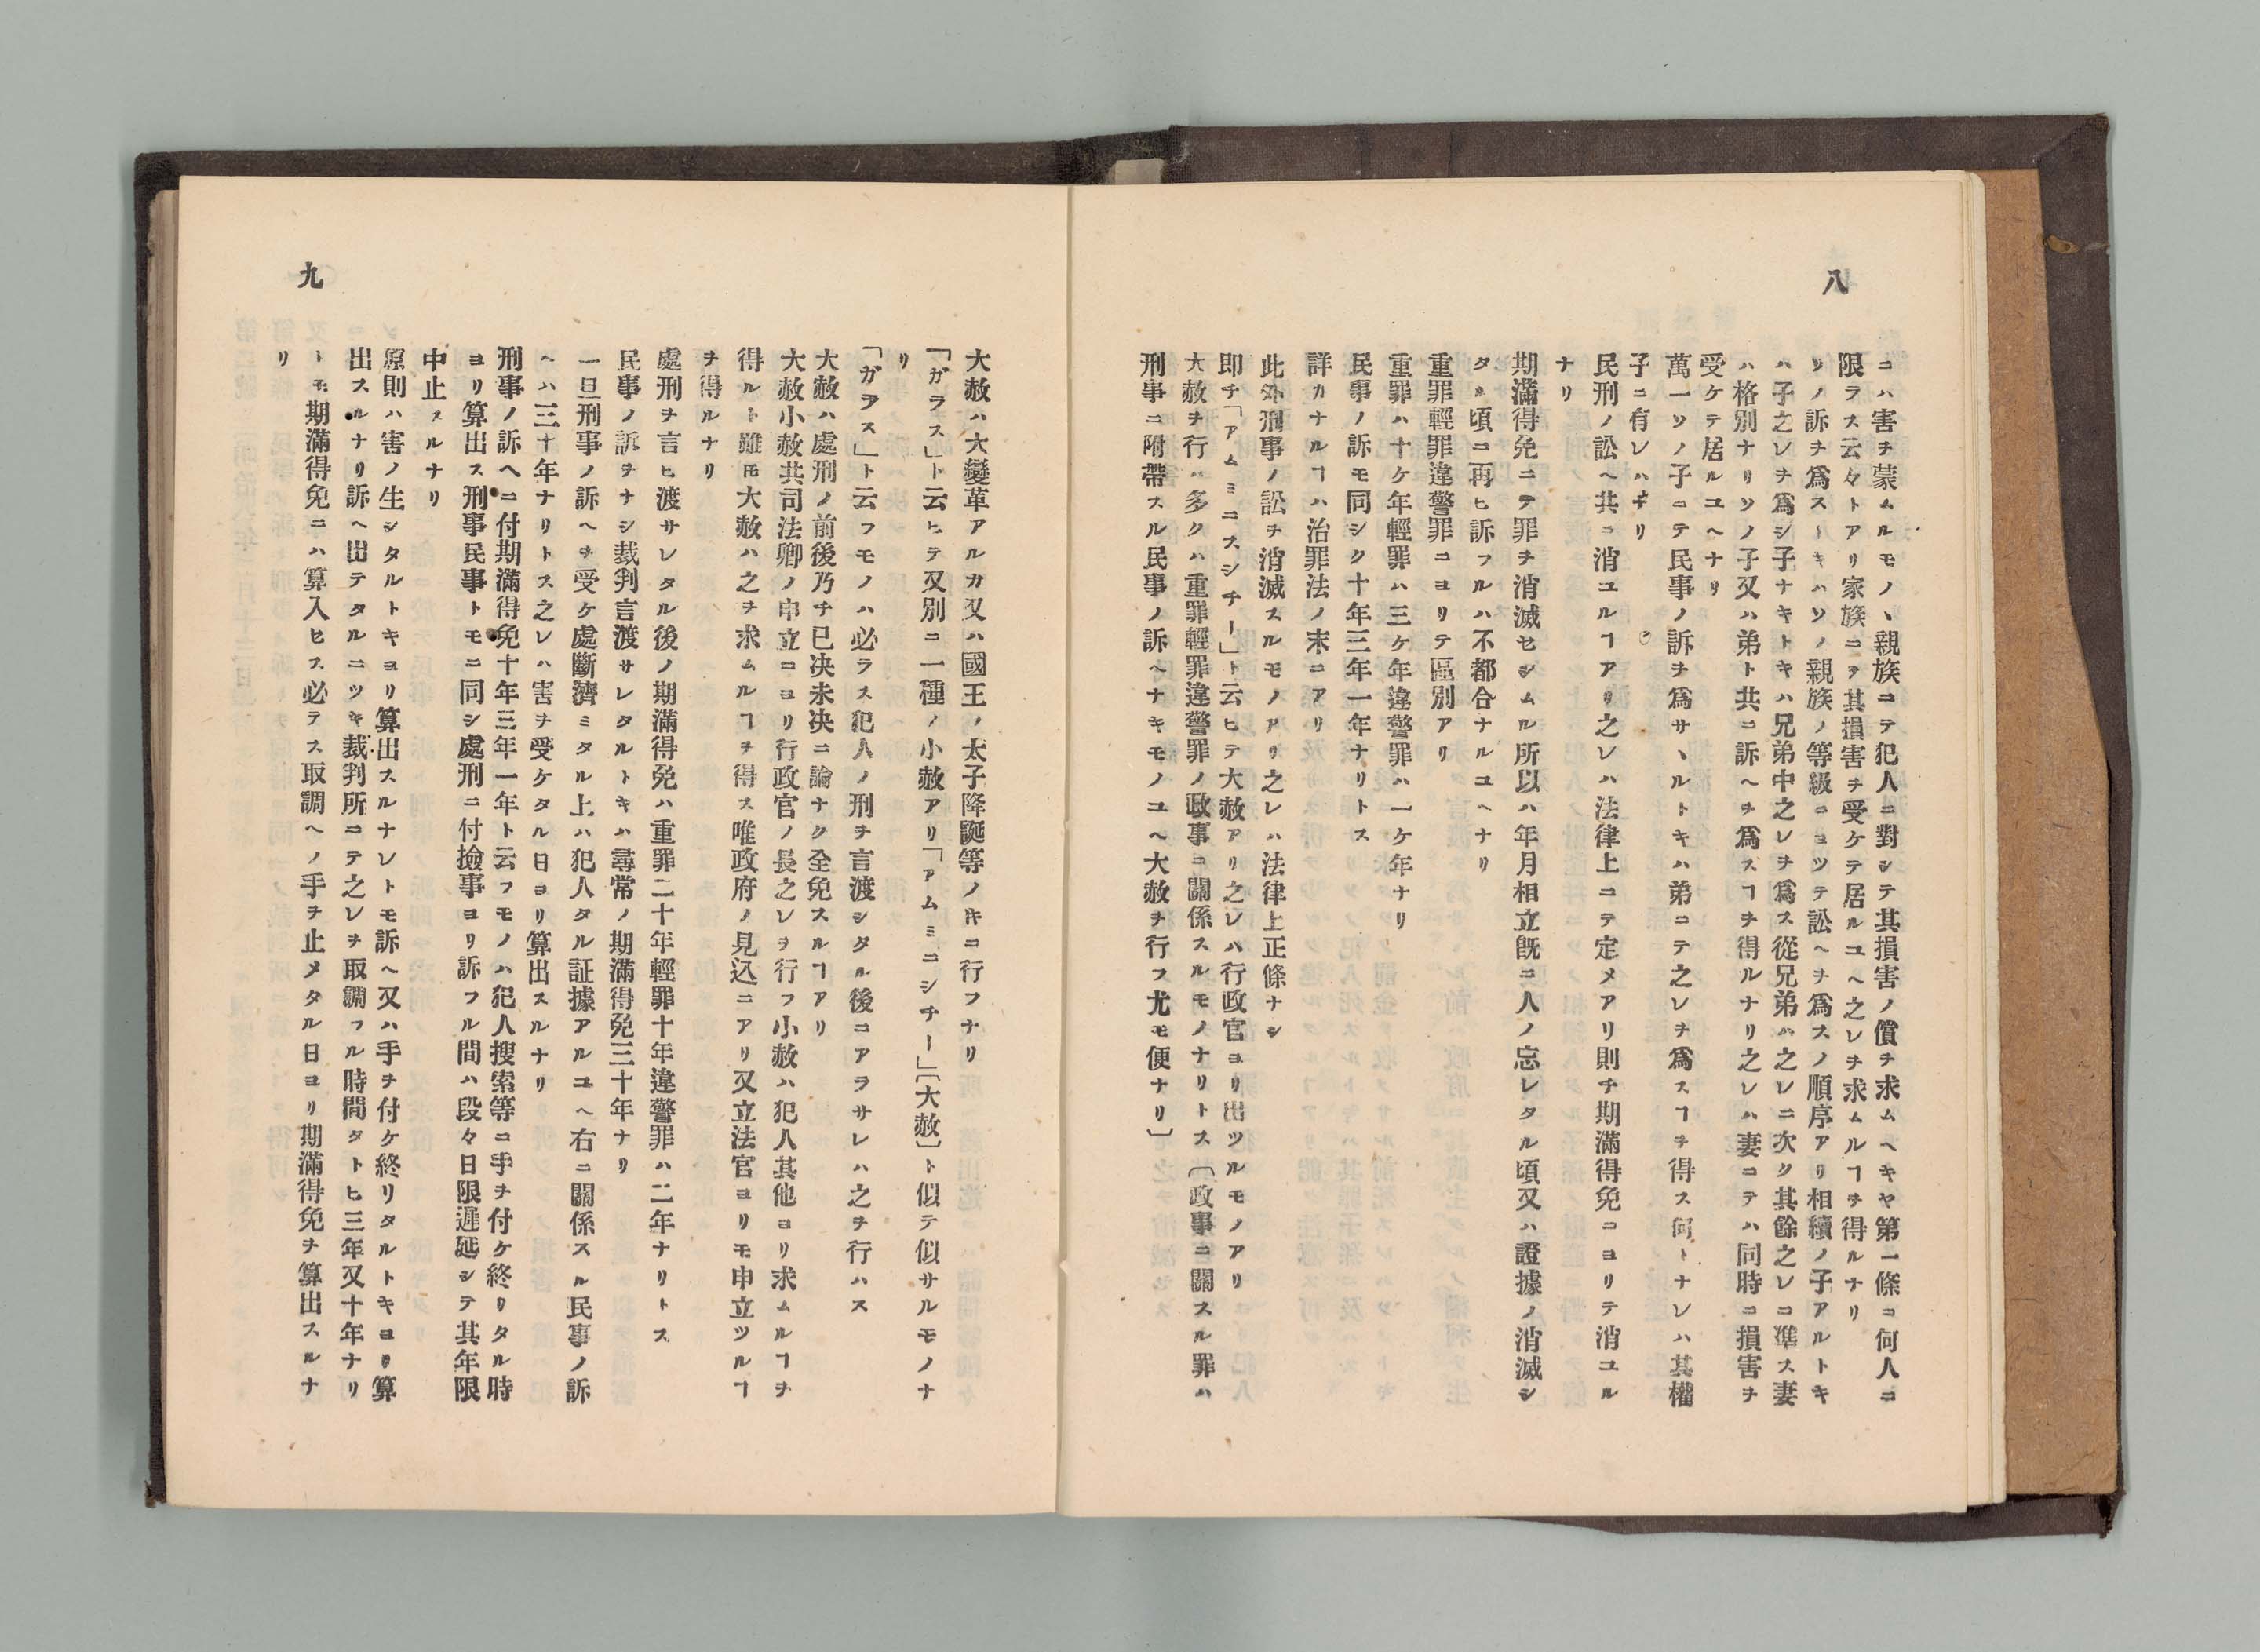 八
ニハ害ヲ蒙ムルモノヽ親族ニテ犯人ニ對シテ其損害ノ償ヲ求ムヘキヤ第一條ニ何人ニ
限ラス云々トアリ家族ニテ其損害ヲ受ケテ居ルユヘ之レヲ求ムルヿヲ得ルナリ
ソノ訴ヲ爲ストキハソノ親族ノ等級ニヨツテ訟ヘヲ爲スノ順序アリ相續ノ子アルトキ
ハ子之レヲ爲シ子ナキトキハ兄弟中之レヲ爲ス從兄弟ハ之レニ次ク其餘之レニ準ス妻
ハ格別ナリソノ子又ハ弟ト共ニ訴ヘヲ爲スヿヲ得ルナリ之レハ妻ニテハ同時ニ損害ヲ
受ケテ居ルユヘナリ
萬一ソノ子ニテ民事ノ訴ヲ爲サヽルトキハ弟ニテ之レヲ爲スヿヲ得ス何トナレハ其權
子ニ有レハナリ
民刑ノ訟ヘ共ニ消ユルヿアリ之レハ法律上ニテ定メアリ則チ期滿得免ニヨリテ消ユル
ナリ
期滿得免ニテ罪ヲ消滅セシムル所以ハ年月相立旣ニ人ノ忘レタル頃又ハ證據ノ消滅シ
タル頃ニ再ヒ訴フルハ不都合ナルユヘナリ
重罪輕罪違警罪ニヨリテ區別アリ
重罪ハ十ケ年輕罪ハ三ケ年違警罪ハ一ケ年ナリ
民事ノ訴モ同シク十年三年一年ナリトス
詳カナルヿハ治罪法ノ末ニアリ
此外刑事ノ訟ヲ消滅スルモノアリ之レハ法律上正條ナシ
即チ「アムミニスシチー」ト云ヒテ大赦アリ之レハ行政官ヨリ出ツルモノアリ
大赦ヲ行ハ多クハ重罪輕罪違警罪ノ政事ニ關係スルモノナリトス〔政事ニ關スル罪ハ
刑事ニ附帶スル民事ノ訴ヘナキモノユヘ大赦ヲ行フ尤モ便ナリ〕
九
大赦ハ大變革アルカ又ハ國王ノ太子降誕等ノキニ行フナリ
「ガラス」ト云ヒテ又別ニ一種ノ小赦アリ「アムミニシチー」〔大赦〕ト似テ似サルモノナ
リ
「ガラス」ト云フモノハ必ラス犯人ノ刑ヲ言渡シタル後ニアラサレハ之ヲ行ハス
大赦ハ處刑ノ前後乃チ已決未決ニ論ナク全免スルヿアリ
大赦小赦共司法卿ノ申立ニヨリ行政官ノ長之レヲ行フ小赦ハ犯人其他ヨリ求ムルヿヲ
得ルト雖𪜈大赦ハ之ヲ求ムルヿヲ得ス唯政府ノ見込ニアリ又立法官ヨリモ申立ツルヿ
ヲ得ルナリ
處刑ヲ言ヒ渡サレタル後ノ期滿得免ハ重罪二十年輕罪十年違警罪ハ二年ナリトス
民事ノ訴ヲナシ裁判言渡サレタルトキハ尋常ノ期滿得免三十年ナリ
一旦刑事ノ訴ヘヲ受ケ處斷濟ミタル上ハ犯人タル証據アルユヘ右ニ關係スル民事ノ訴
ヘハ三十年ナリトス之レハ害ヲ受ケタル日ヨリ算出スルナリ
刑事ノ訴ヘニ付期滿得免十年三年一年ト云フモノハ犯人搜索等ニ手ヲ付ケ終リタル時
ヨリ算出ス刑事民事トモニ同シ處刑ニ付撿事ヨリ訴フル間ハ段々日限遲延シテ其年限
中止スルナリ
原則ハ害ノ生シタルトキヨリ算出スルナレトモ訴ヘ又ハ手ヲ付ケ終リタルトキヨリ算
出スルナリ訴ヘ出テタルニツキ裁判所ニテ之レヲ取調フル時間タトヒ三年又十年ナリ
トモ期滿得免ニハ算入セス必ラス取調ヘノ手ヲ止メタル日ヨリ期滿得免ヲ算出スルナ
リ